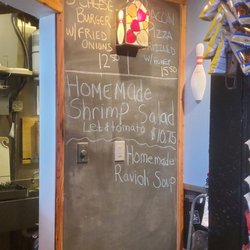 3 CHEESE
BURGER
W/ FRIED
ONIONS
12.50
BACON
PIZZA
DRIZZLED
W/ HONEY
15.50
HOMEMADE
Shrimp Salad
Let & tomato $10.75
Homemade
Ravioli Soup